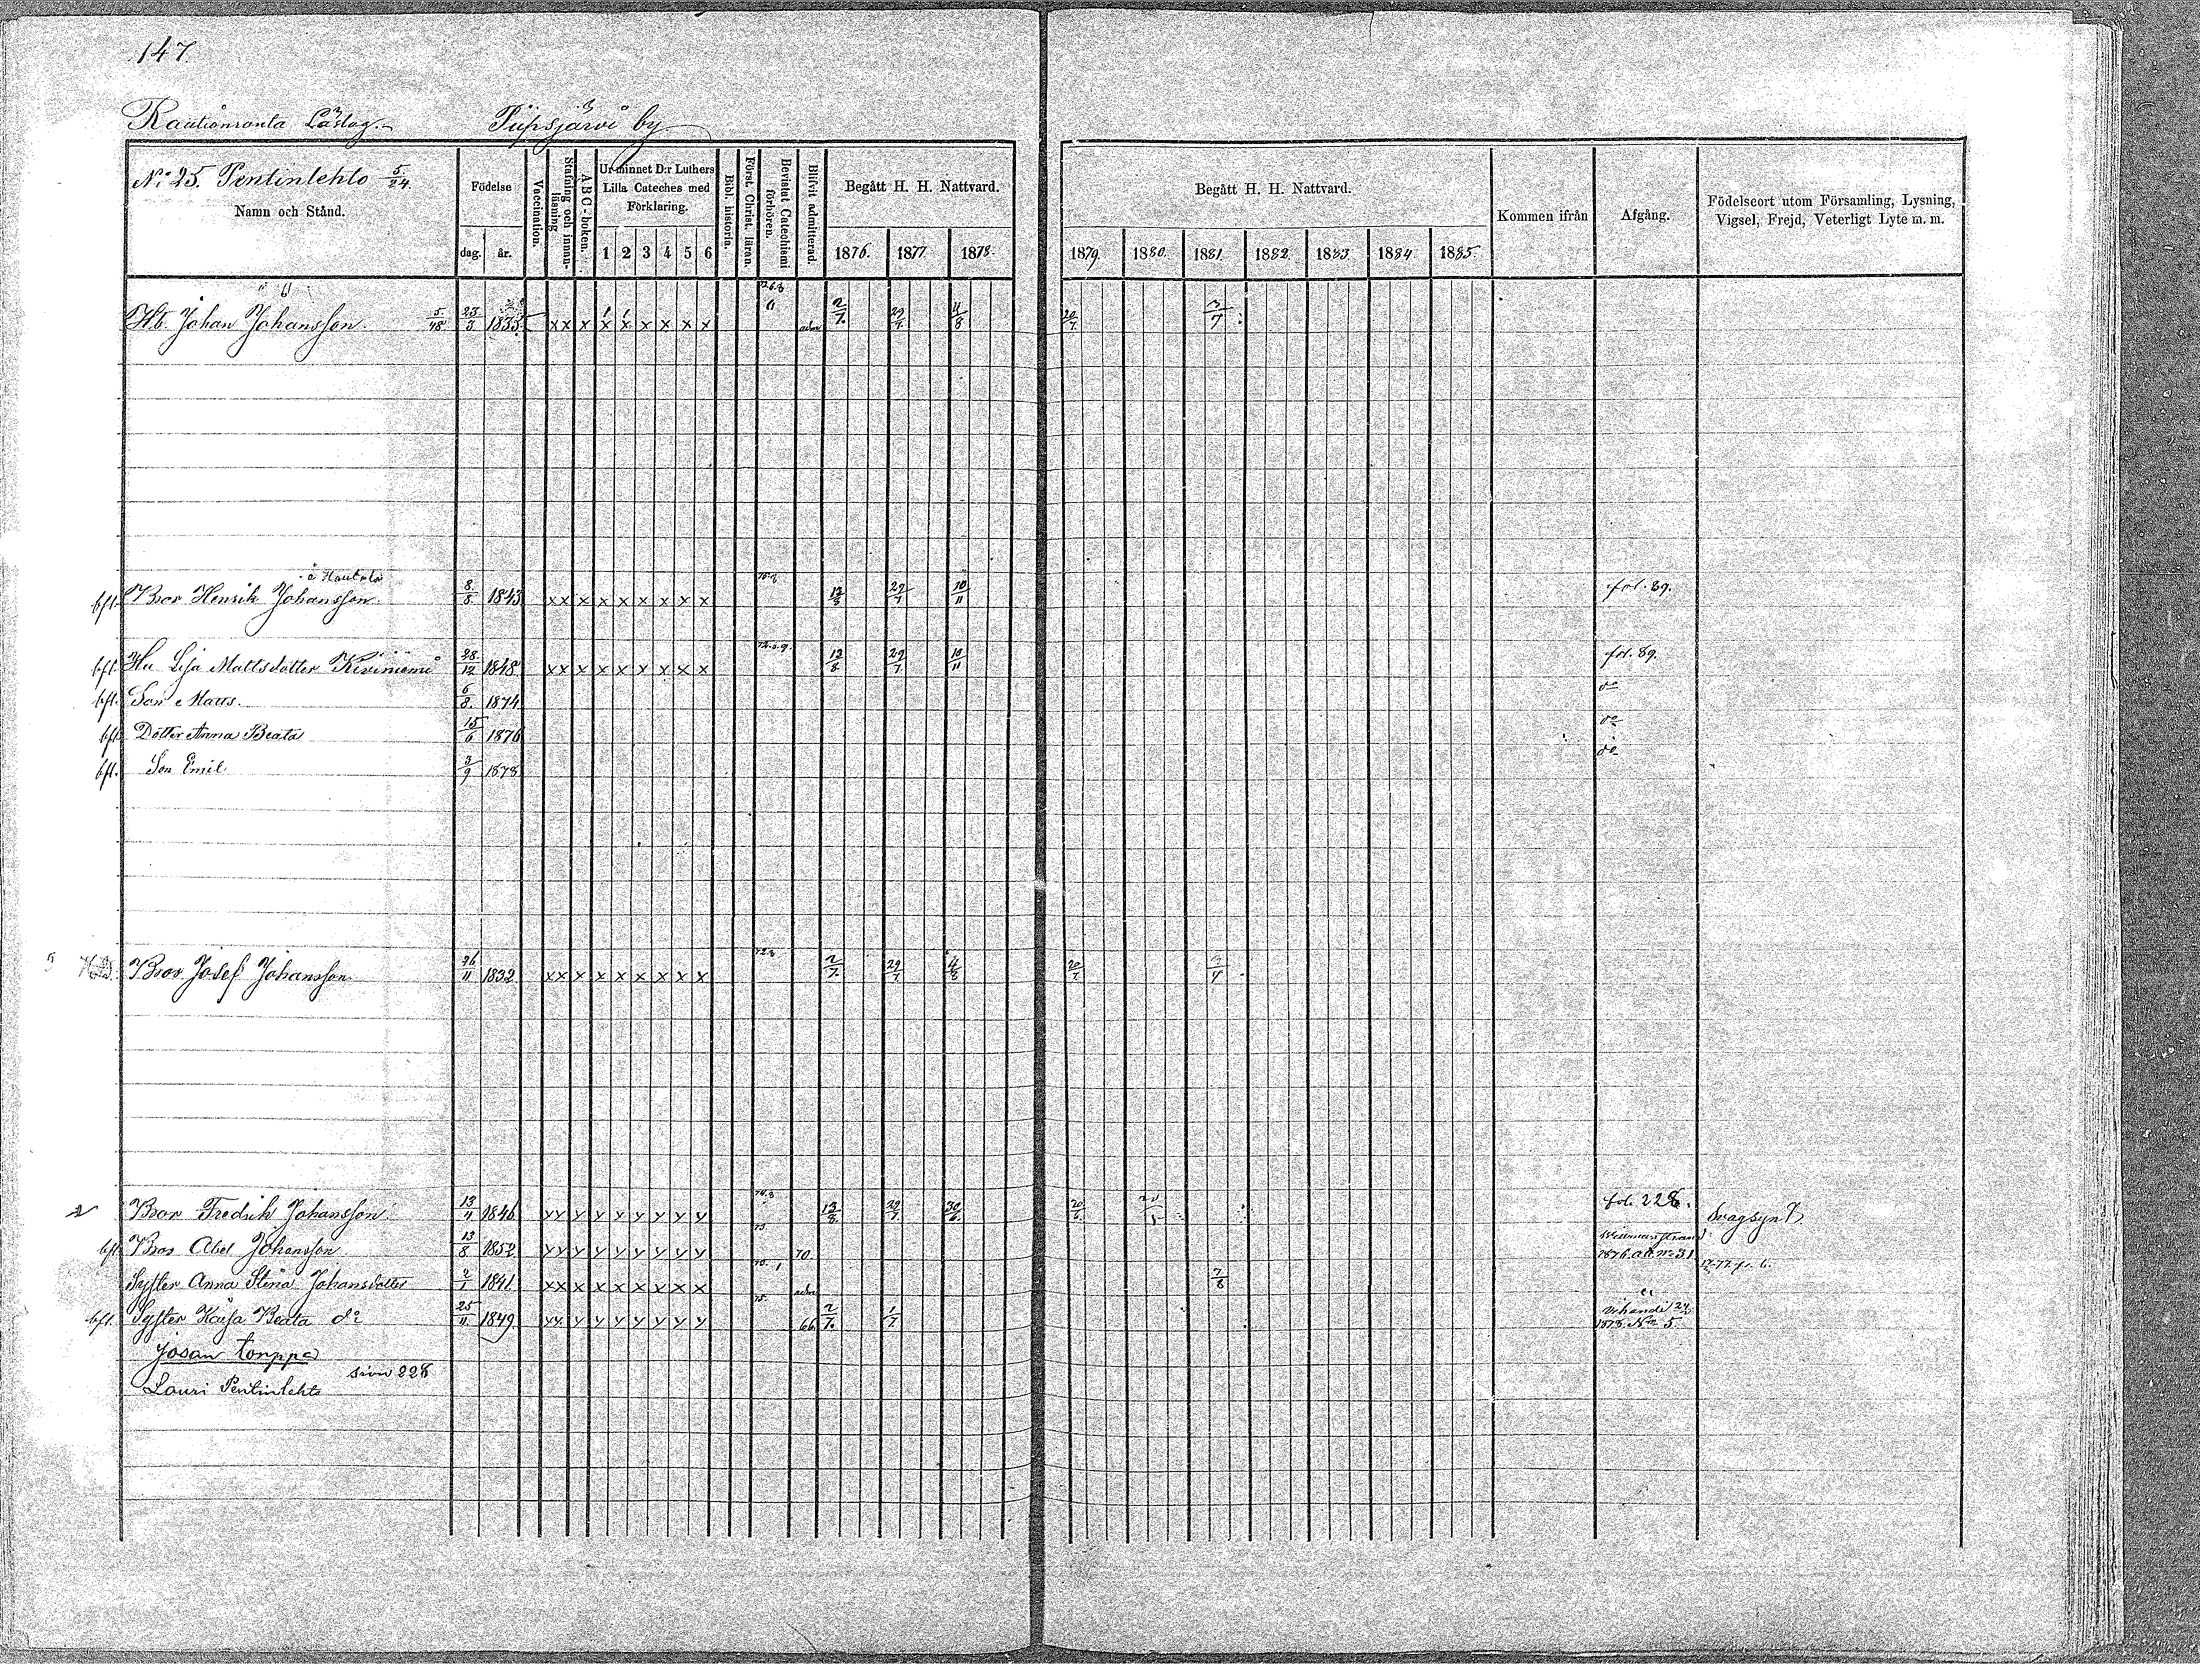 147.
Rautionranta Läslag. Piipsjärvi by
No 25. Pentinlehto 5/24.
Namn och Stånd.
Födelse
dag. år.
Vaccination.
Stafning och innan-läsning
ABC-boken.
Ur minnet D:r Luthers Lilla Cateches med Förklaring.
1 2 3 4 5 6
Bibl. historia.
Först. Christ. läran.
Bevistat Catechismi förhören.
Blifvit admitterad.
Begått H. H. Nattvard.
1876. 1877. 1878.
Begått H. H. Nattvard.
1879. 1880. 1881. 1882. 1883. 1884. 1885.
Kommen ifrån
Afgång.
Födelseort utom Församling, Lysning, Vigsel, Frejd, Veterligt Lyte m. m.
Hb. Johan Johansson. 5/48 23/3 1835 x x x x x x x x x adm 2/7. 29/7 4/8 20/7. 3/7
å Hautala
bfl. Bror Henrik Johansson 8/8 1843 x x x x x x x x x 13/8 29/7 10/11 fol. 89.
bfl. Hu Lisa Mattsdotter Kiviniemi 28/12 1848 x x x x x x x x x 13/8 29/7 10/11 fol. 89.
bfl. Son Matts. 6/8 1874 do
bfl. Dotter Anna Beata 15/6 1876 do
bfl. Son Emil 3/9 1878 do
Bror Josef Johansson 26/11 1832 x x x x x x x x x 72.8 2/7. 29/7 4/8 20/7 3/7
2 Bror Fredrik Johansson 13/4 1846 y y y y y y y y y 13/8 29/7 30/6. 20/6. fol. 228. Svagsynt
bfl. Bror Abel Johansson 13/8 1852 y y y y y y y y y 70. 1876. att. no 31
Syster Anna Stina Johansdotter 2/1 1841. x x x x x x x x x adm 7/8
bfl. Syster Kajsa Beata do 25/11 1849 y y y y y y y y y 66. 2/7. 1/7 Vihandi 1878. No 5.
Josan torppa
sivu 228
Lauri Pentinlehto